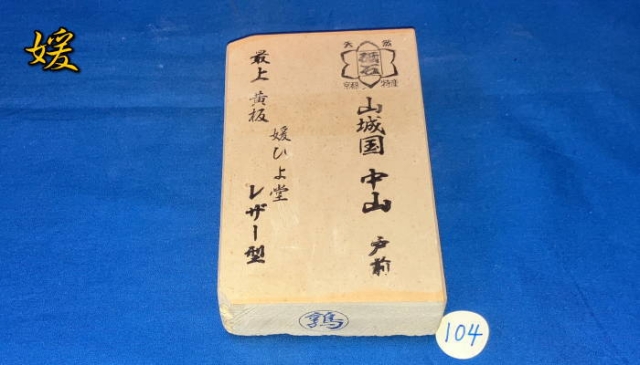 媛
天然
砥石
京都
特産
山城国 中山 戸前
最上 黄板
媛ひよ堂
レザー型
鶉
104